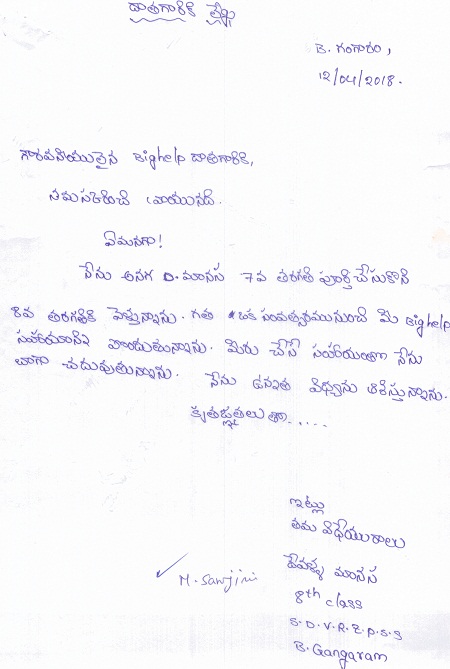 దాతగారికి లేఖ
B. గంగారం,
12/04/2018.
గౌరవనీయులైన Bighelp దాతగారికి,
నమస్కరించి వ్రాయునది.
ఏమనగా!
నేను అనగా D. మానస 7వ తరగతి పూర్తి చేసుకొని
8వ తరగతికి వెళ్తున్నాను. గత ఒక సంవత్సరమునుంచి మీ Bighelp
సహాయాన్ని పొందుతున్నాను. మీరు చేసే సహాయంతో నేను
బాగా చదువుతున్నాను. నేను ఉన్నత విధ్యను ఆశిస్తున్నాను.
కృతజ్ఞతలు తో.....
ఇట్లు
తమ విధేయురాలు
మానస
8th class
S.D.V.R.Z.P.S.S
B. Gangaram